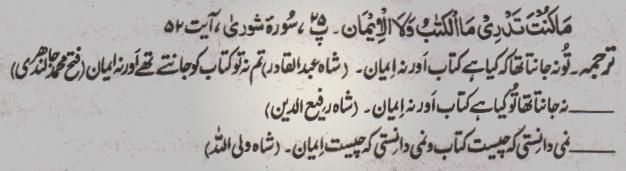 مَاکُنْتَ تَدْرِیْ مَا الْکِتٰبُ وَلَا الْاِیْمَان ۔ پ ۲۵، سُورۃ شورٰی، آیت ۵۲
ترجمہ ۔ تُو نہ جانتا تھا کہ کیا ہے کتاب اَور نہ اِیمان ۔ (شاہ عبدالقادر) تم نہ تو کتاب کو جانتے تھے اَور نہ ایمان (فتح محمد جالندہری)
نہ جانتا تھا تُو کیا ہے کتاب اَور نہ اِیمان ۔ (شاہ رفیع الدین)
نمی دانِستی کہ چیست کتاب و نمی دانستی کہ چیست اِیمان ۔ (شاہ ولی اللہ)